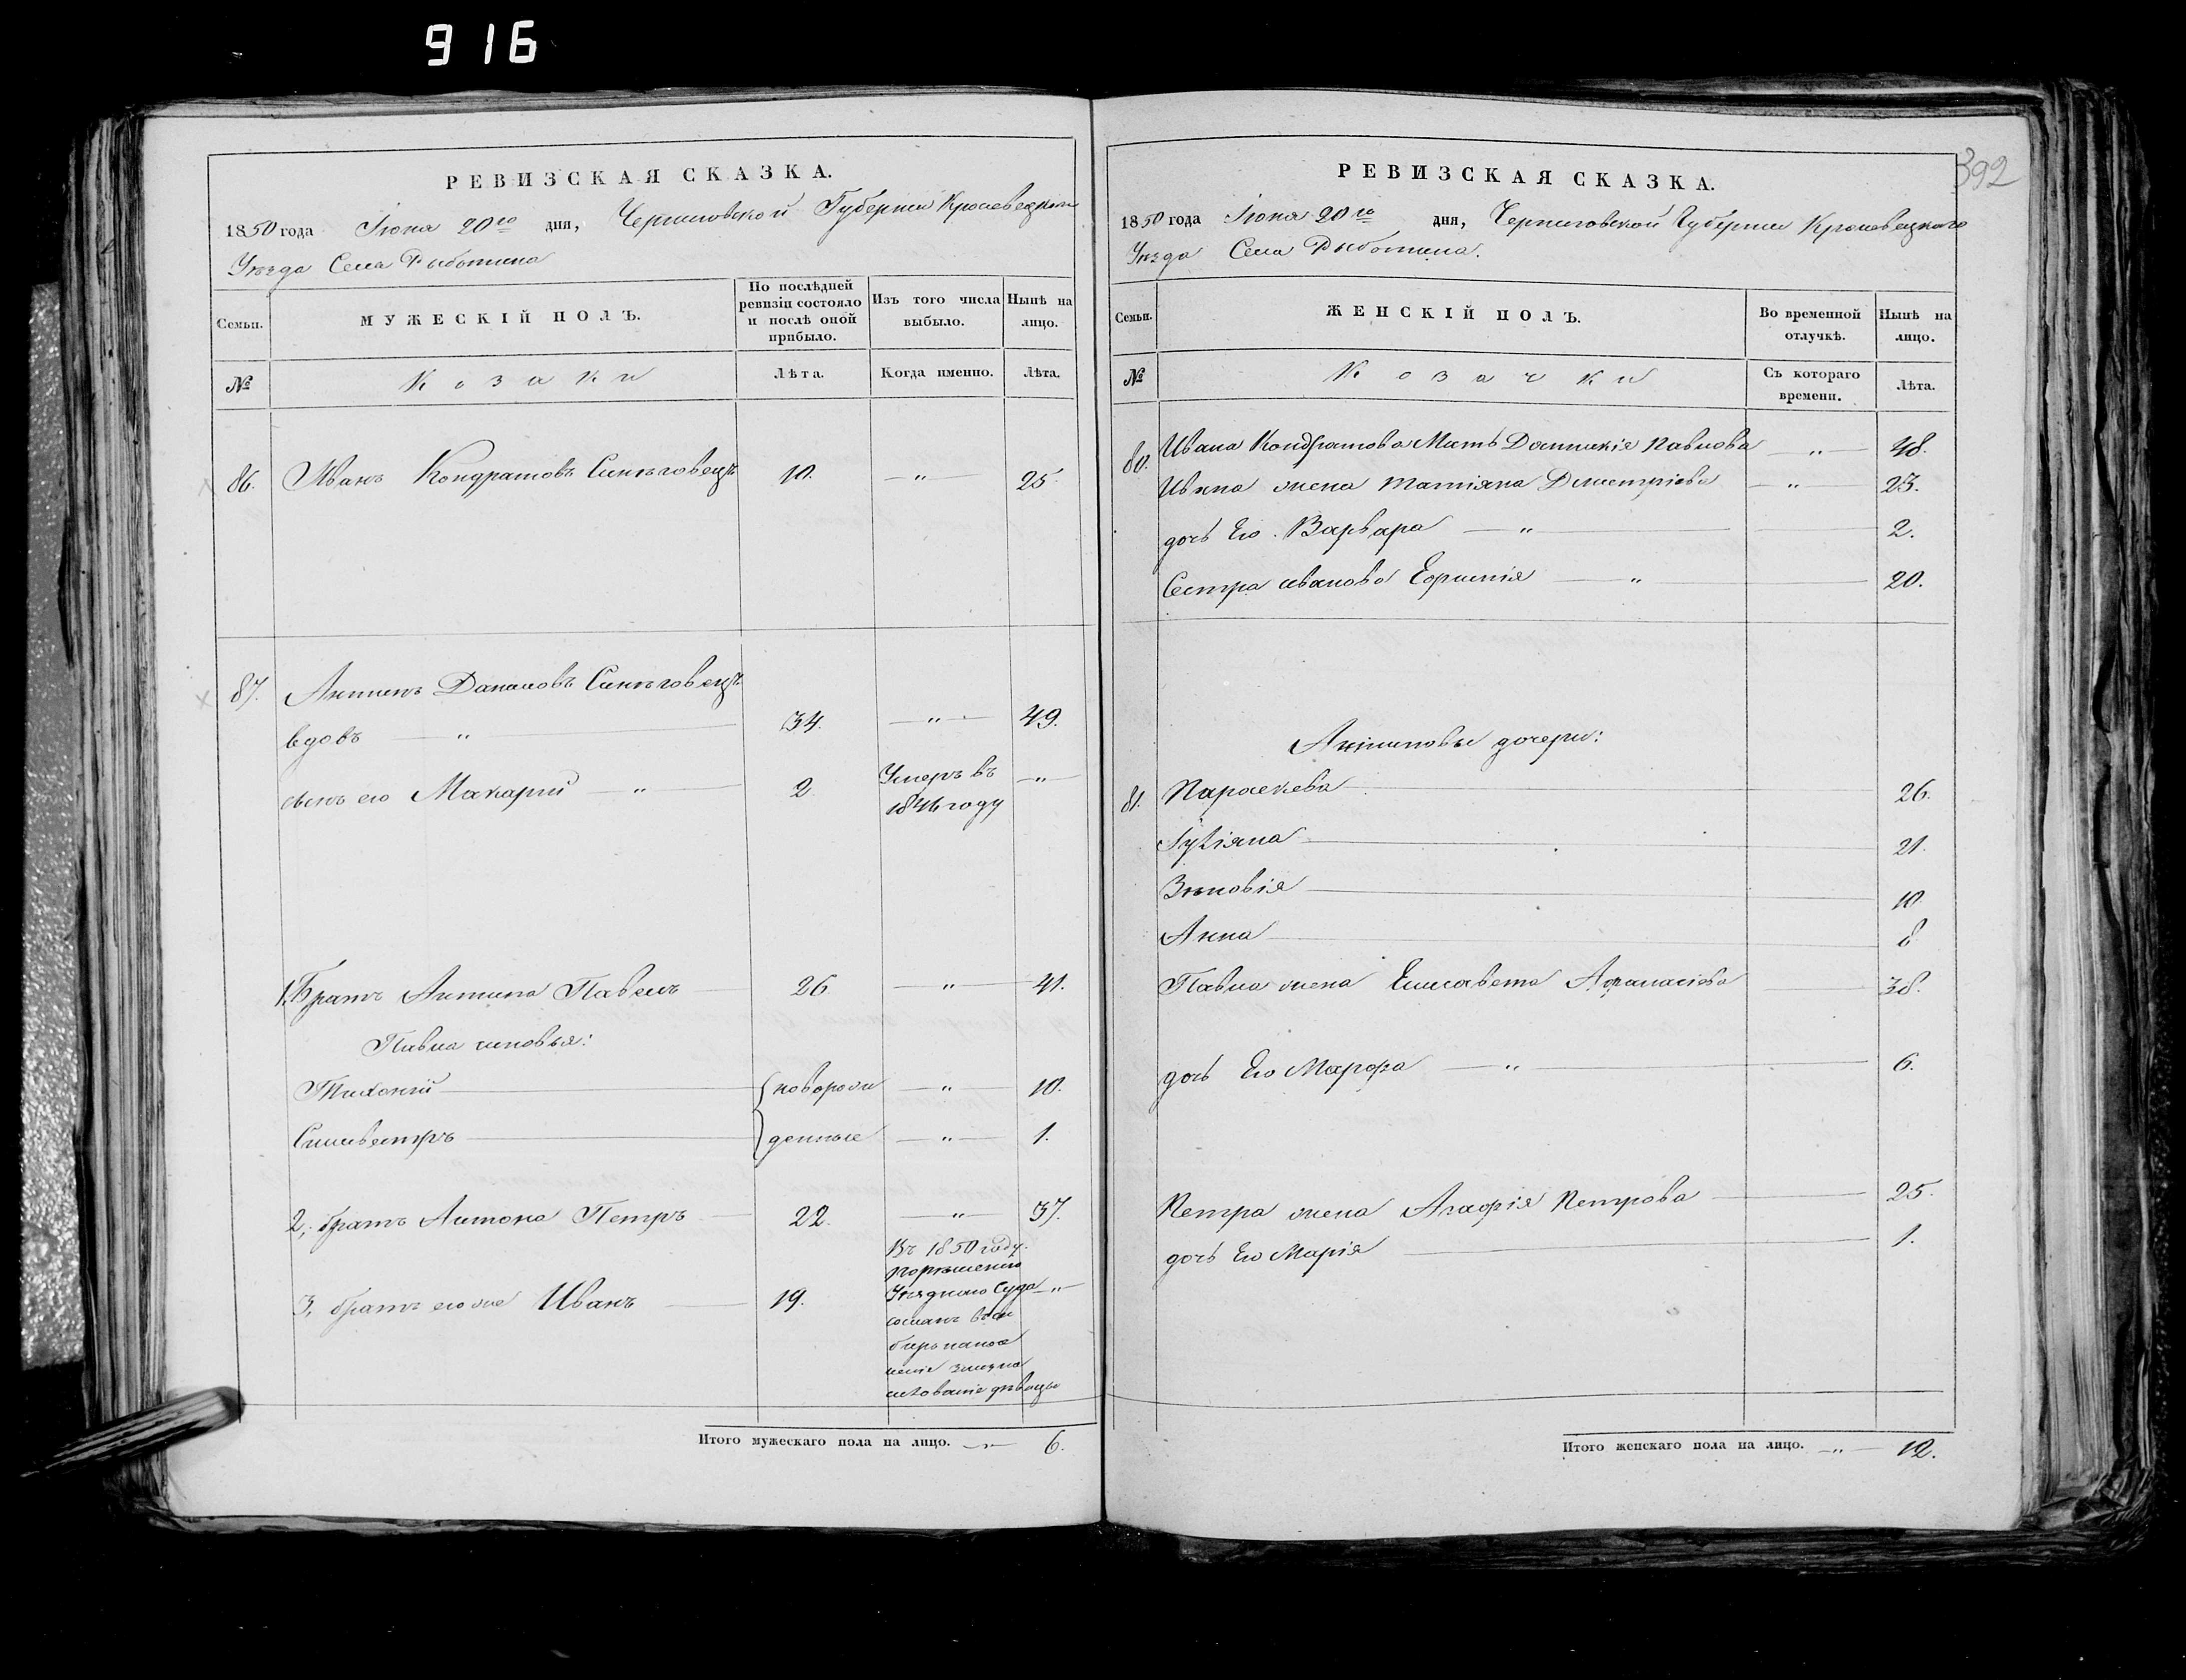 916
РЕВИЗСКАЯ СКАЗКА.
1850 года Іюня 20го дня, Черниговской Губерніи Кролевецкаго
Уѣзда Села Рыботина
Семьи.
МУЖЕСКІЙ ПОЛЪ.
По послѣдней ревизіи состояло и послѣ оной прибыло.
Изъ того числа выбыло.
Нынѣ на лицо.
№
Козаки
Лѣта.
Когда именно.
Лѣта.
86. Иванъ Кондратовъ Синѣговецъ 10. — „ — 25.
87. Антинъ Даниловъ Синѣговецъ
вдовъ — „ — 34. — „ — 49.
сынъ его Макарій — „ — 2 Умеръ въ — „ —
1846 году
1. Братъ Антипа Павелъ — 26 — „ — 41.
Павла синовья:
Тихоній — { новорож — „ — 10.
Силивестръ — } денные — „ — 1.
2, братъ Антона Петръ — 22. — „ — 37.
3, братъ его же Иванъ — 19.
Въ 1850 году.
порѣшению
Уѣзднаго Суда — „ —
сосланъ въ Си
бирь на посе
леніе за изна
силованіе дѣвицы
Итого мужескаго пола на лицо. — „ — 6.
392
РЕВИЗСКАЯ СКАЗКА.
1850 года Іюня 20го дня, Черниговской Губерніи Кролевецкаго
Уѣзда Села Рыботина.
Семьи.
ЖЕНСКІЙ ПОЛЪ.
Во временной отлучкѣ.
Нынѣ на лицо.
№
Козачки
Съ котораго времени.
Лѣта.
80. Ивана Кондратова Мать Домникія Павлова — „ — 48.
Ивана жена Татіяна Дмитріева — „ — 23.
дочь Его Варвара — „ — 2.
Сестра иванова Ефимія — „ — 20.
Антиповы дочери:
81. Параскева — 26.
Іуліяна — 21.
Зѣновія — 10.
Анна — 8
Павла жена Елисавета Афанасіева — 38.
дочь Его Марфа — „ — 6.
Петра жена Агафія Петрова — 25.
дочь Его Марія — 1.
Итого женскаго пола на лицо. — „ — 12.